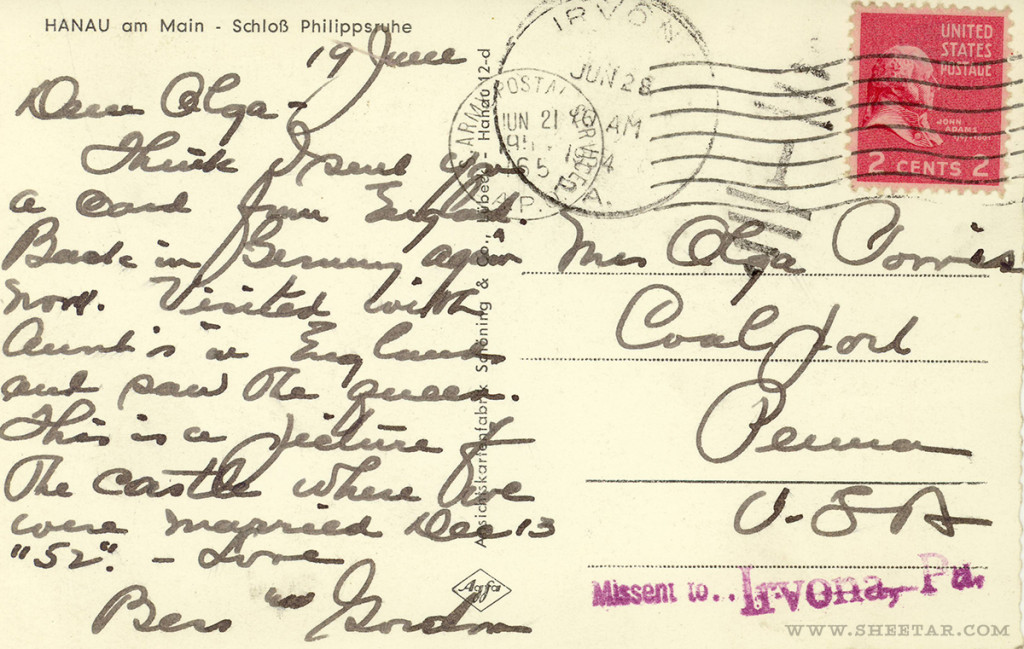 HANAU am Main - Schloß Philippsruhe
19 June
Dear Olga -
Think I sent you
a card from England.
Back in Germany again
now. Visited with
Aunt's in England
and saw the queen.
This is a picture of
the castle where we
were married Dec 13
"52". - Love
Bess Gordon
Ansichtskartenfabrik Schöning & Co., Lübeck - Hanau 12-d
Agfa
IRVON
JUN 28
AM
PA.
ARMY POSTAL SERVICE
JUN 21
A.P.
UNITED
STATES
POSTAGE
JOHN
ADAMS
2 CENTS 2
Mrs Olga
Coalport
Penna
U-S-A
Missent to.. Irvona, Pa.
WWW.SHEETAR.COM